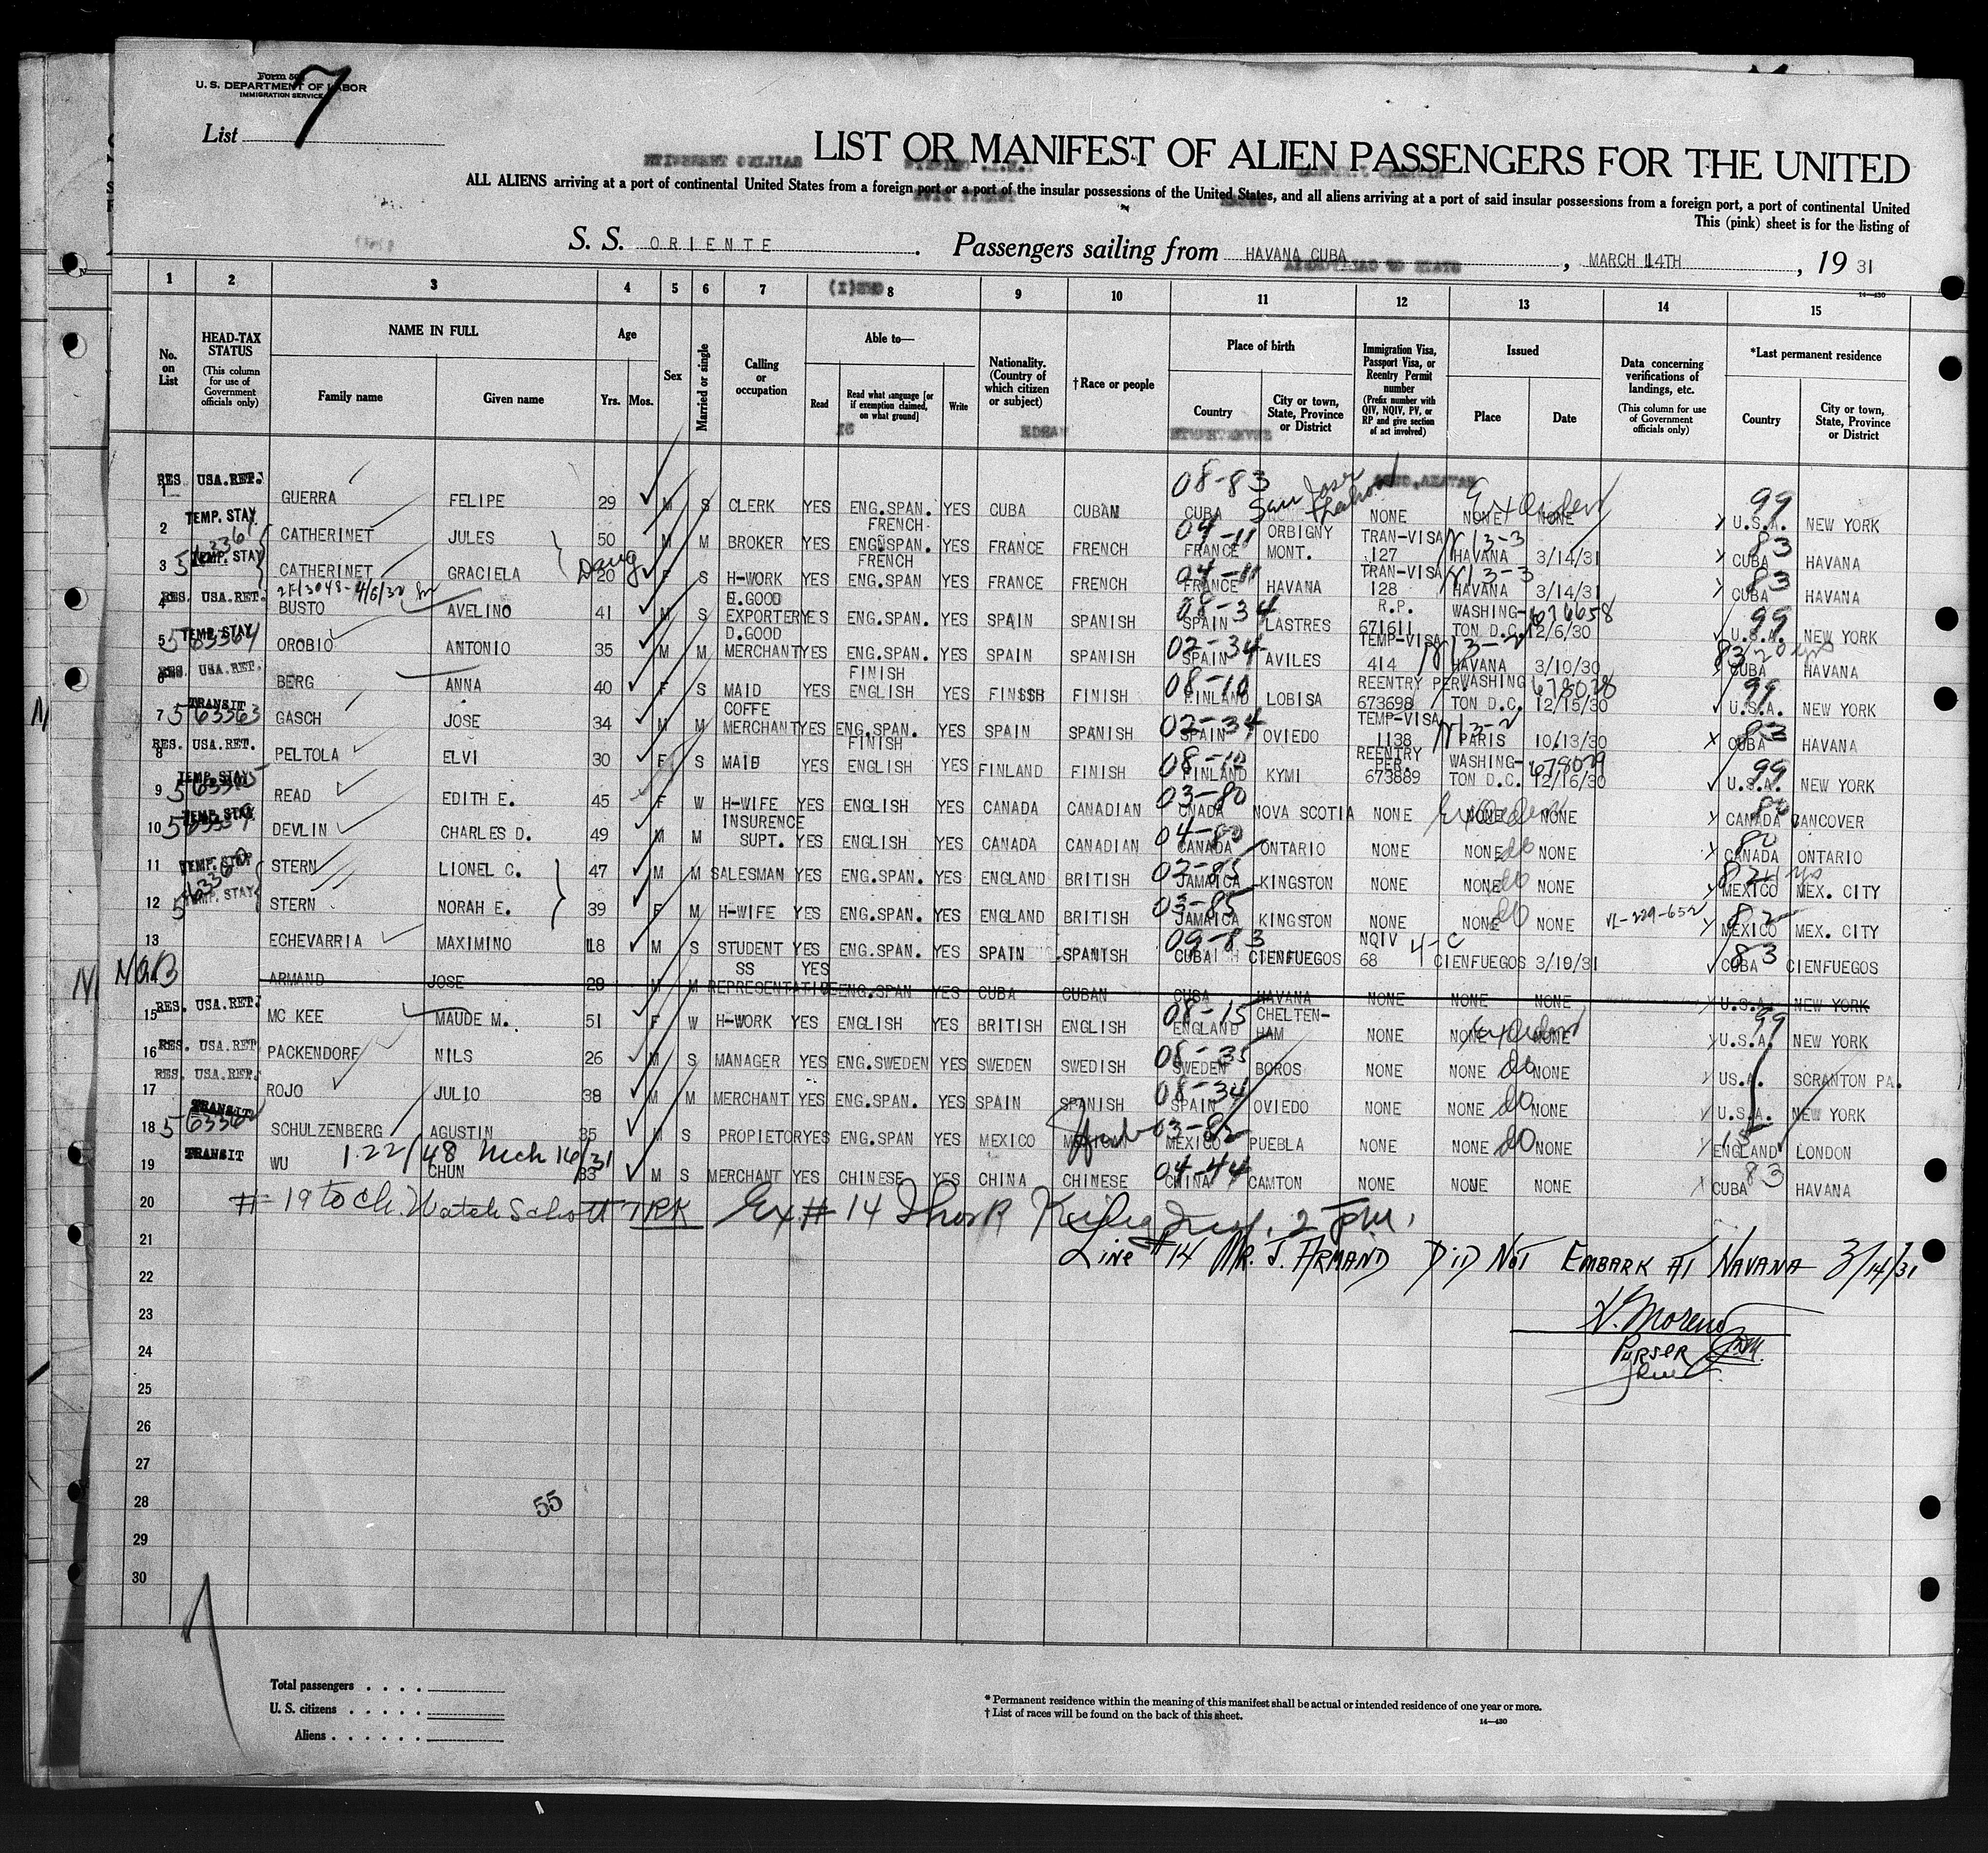 Form 500
U. S. DEPARTMENT OF LABOR
IMMIGRATION SERVICE
List 7
LIST OR MANIFEST OF ALIEN PASSENGERS FOR THE UNITED
ALL ALIENS arriving at a port of continental United States from a foreign port or a port of the insular possessions of the United States, and all aliens arriving at a port of said insular possessions from a foreign port, a port of continental United
This (pink) sheet is for the listing of
S. S. ORIENTE. Passengers sailing from HAVANA CUBA, MARCH 14TH, 19 31
14—430
1 2 3 4 5 6 7 8 9 10 11 12 13 14 15
No. on List
HEAD-TAX STATUS (This column for use of Government officials only)
NAME IN FULL Family name Given name
Age Yrs. Mos.
Sex
Married or single
Calling or occupation
Able to— Read Read what language [or if exemption claimed, on what ground] Write
Nationality. (Country of which citizen or subject)
†Race or people
Place of birth Country City or town, State, Province or District
Immigration Visa, Passport Visa, or Reentry Permit number (Prefix number with QIV, NQIV, PV, or RP and give section of act involved)
Issued Place Date
Data concerning verifications of landings, etc. (This column for use of Government officials only)
*Last permanent residence Country City or town, State, Province or District
1 RES. USA.RET. GUERRA FELIPE 29 M S CLERK YES ENG.SPAN. YES CUBA CUBAN 08-83 CUBA San Jose NONE NONE NONE 99 U.S.A. NEW YORK
2 TEMP. STAY CATHERINET JULES 50 M M BROKER YES FRENCH ENG.SPAN. YES FRANCE FRENCH 04-11 FRANCE ORBIGNY MONT. TRAN-VISA 127 HAVANA 3/14/31 83 CUBA HAVANA
3 TEMP. STAY CATHERINET GRACIELA Daug 20 F S H-WORK YES FRENCH ENG.SPAN YES FRANCE FRENCH 04-11 FRANCE HAVANA TRAN-VISA 128 HAVANA 3/14/31 83 CUBA HAVANA
4 RES. USA.RET. BUSTO AVELINO 41 M S E.GOOD EXPORTER YES ENG.SPAN. YES SPAIN SPANISH 08-34 SPAIN LASTRES R.P. 671611 WASHING-TON D.C. 676658 12/6/30 99 U.S.A. NEW YORK
5 TEMP. STAY 563364 OROBIO ANTONIO 35 M M D.GOOD MERCHANT YES ENG.SPAN. YES SPAIN SPANISH 02-34 SPAIN AVILES TEMP-VISA 414 HAVANA 3/10/30 83 20 yrs CUBA HAVANA
6 RES. USA.RET. BERG ANNA 40 F S MAID YES FINISH ENGLISH YES FINSSH FINISH 08-10 FINLAND LOBISA REENTRY PER. 673698 WASHING TON D.C. 678078 12/15/30 99 U.S.A. NEW YORK
7 TRANSIT 563363 GASCH JOSE 34 M M COFFE MERCHANT YES ENG.SPAN. YES SPAIN SPANISH 02-34 SPAIN OVIEDO TEMP-VISA 1138 PARIS 10/13/30 83 CUBA HAVANA
8 RES. USA.RET. PELTOLA ELVI 30 F S MAID YES FINISH ENGLISH YES FINLAND FINISH 08-10 FINLAND KYMI REENTRY PER. 673889 WASHING-TON D.C. 678079 12/16/30 99 U.S.A. NEW YORK
9 TEMP. STAY READ EDITH E. 45 F W H-WIFE YES ENGLISH YES CANADA CANADIAN 03-80 CNADA NOVA SCOTIA NONE NONE NONE 80 CANADA VANCOVER
10 TEMP. STAY DEVLIN CHARLES D. 49 M M INSURENCE SUPT. YES ENGLISH YES CANADA CANADIAN 04-80 CANADA ONTARIO NONE NONE do NONE 80 CANADA ONTARIO
11 TEMP. STAY STERN LIONEL C. 47 M M SALESMAN YES ENG.SPAN. YES ENGLAND BRITISH 02-85 JAMAICA KINGSTON NONE NONE do NONE 82 MEXICO MEX. CITY
12 TEMP. STAY STERN NORAH E. 39 F M H-WIFE YES ENG.SPAN. YES ENGLAND BRITISH 03-85 JAMAICA KINGSTON NONE NONE do NONE VL-229-652 82 MEXICO MEX. CITY
13 ECHEVARRIA MAXIMINO 18 M S STUDENT YES ENG.SPAN. YES SPAIN SPANISH 09-83 CUBA CIENFUEGOS NQIV 68 4-C CIENFUEGOS 3/10/31 83 CUBA CIENFUEGOS
N.O.B ARMAND JOSE 29 M M SS REPRESENTATIVE YES ENG.SPAN YES CUBA CUBAN CUBA HAVANA NONE NONE NONE U.S.A. NEW YORK
15 RES. USA.RET. MC KEE MAUDE M. 51 F W H-WORK YES ENGLISH YES BRITISH ENGLISH 08-15 ENGLAND CHELTEN-HAM NONE NONE NONE 99 U.S.A. NEW YORK
16 RES. USA.RET. PACKENDORF NILS 26 M S MANAGER YES ENG.SWEDEN YES SWEDEN SWEDISH 08-35 SWEDEN BOROS NONE NONE do NONE US.A. SCRANTON PA.
17 RES. USA.RET. ROJO JULIO 38 M M MERCHANT YES ENG.SPAN. YES SPAIN SPANISH 08-34 SPAIN OVIEDO NONE NONE do NONE U.S.A. NEW YORK
18 TRANSIT 563362 SCHULZENBERG AGUSTIN 35 M S PROPIETOR YES ENG.SPAN YES MEXICO 03-82 MEXICO PUEBLA NONE NONE do NONE 15 ENGLAND LONDON
19 TRANSIT WU 122/48 Mch 16/31 CHUN 33 M S MERCHANT YES CHINESE YES CHINA CHINESE 04-44 CHINA CAMTON NONE NONE NONE 83 CUBA HAVANA
20 # 19 to ch. TRK Ex # 14 2 pm.
21 LINE #14 MR. J. ARMAND DID NOT EMBARK AT HAVANA 3/14/31
22
23 Moreno
24 PURSER
25
26
27
28 55
29
30
Total passengers
U. S. citizens
Aliens
* Permanent residence within the meaning of this manifest shall be actual or intended residence of one year or more.
† List of races will be found on the back of this sheet.
14—430